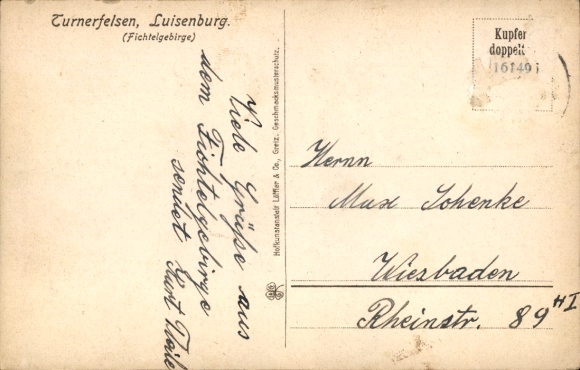 Turnerfelsen, Luisenburg.
(Fichtelgebirge)
Viele Grüße aus
dem Fichtelgebirge
sendet Kurt Theile
Hofkunstanstalt Löffler & Co., Greiz. Geschmacksmusterschutz.
Kupfer
doppelt
161491
Herrn
Max Schenke
Wiesbaden
Rheinstr. 89 HI